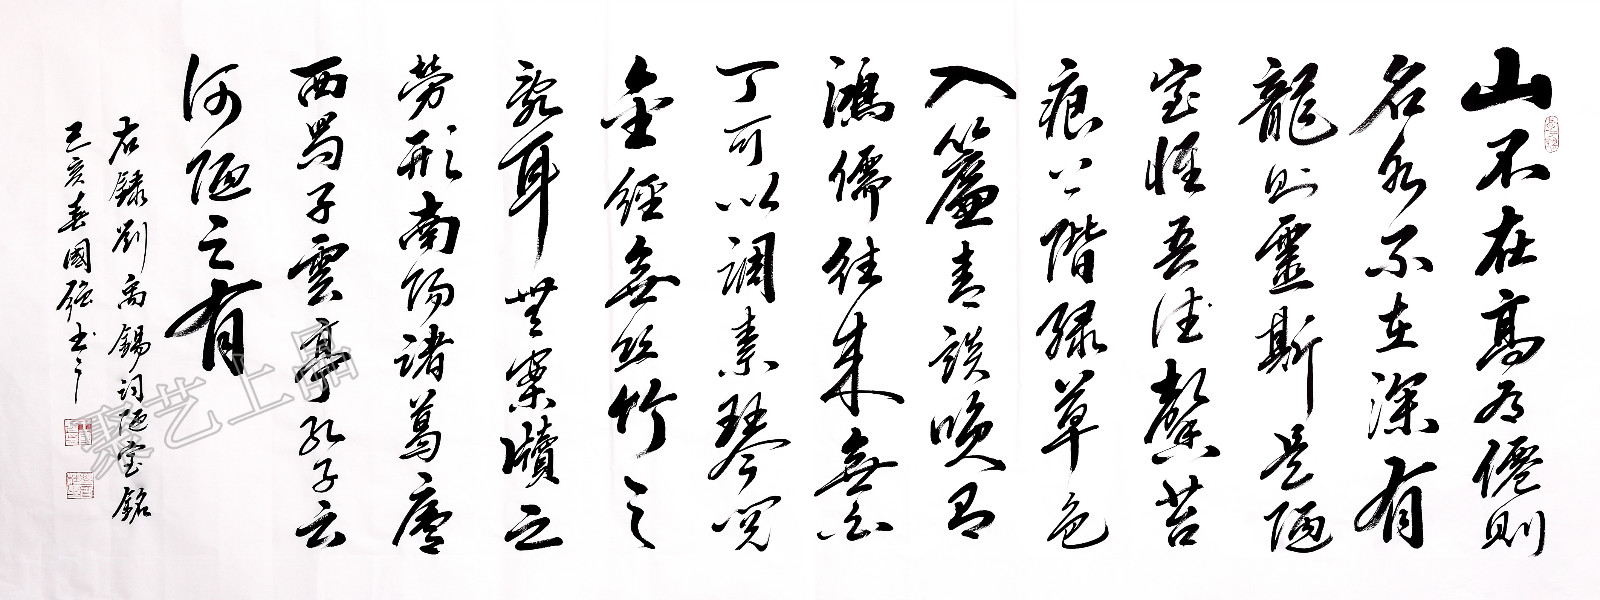 山不在高有僊則
名水不在深有
龍則靈斯是陋
室惟吾德馨苔
痕上階緑草色
入簾青談咲有
鴻儒往来無白
丁可以調素琴閲
金經無丝竹之
亂耳無案牘之
勞形南陽諸葛廬
西蜀子雲亭孔子云
何陋之有
右録劉禹錫詞陋室銘
己亥春國强书
聚艺上品